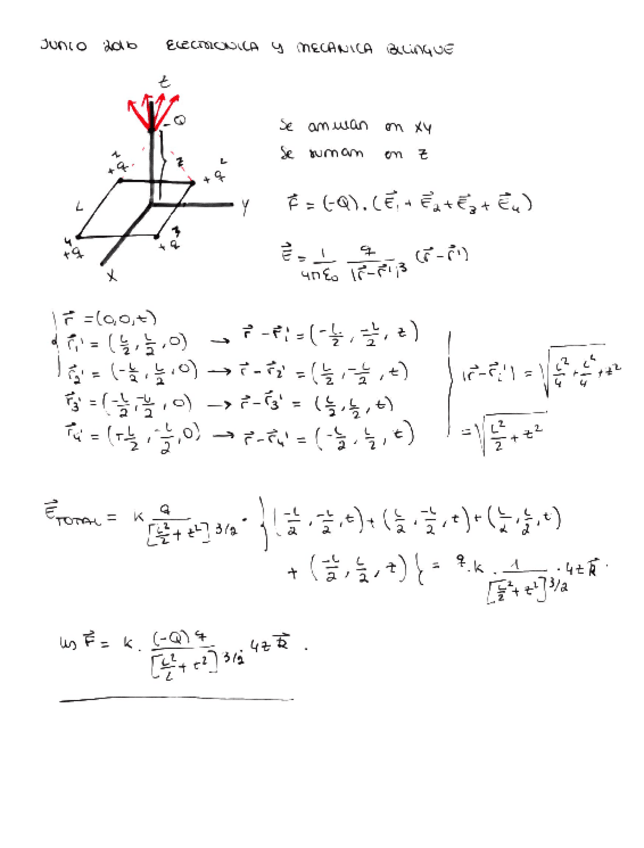 JUNIO 2016 ELECTRONICA Y MECANICA BILINGUE
z
-Q
Se anulan en xy
Se suman en z
z
1
+q
2
+q
L
Y
4
+q
3
+q
X
F⃗ = (-Q) · (E⃗1 + E⃗2 + E⃗3 + E⃗4)
E⃗ = 1/(4πε0) q/|r⃗-r⃗'|^3 (r⃗-r⃗')
r⃗ = (0,0,z)
r⃗1' = (L/2, L/2, 0) → r⃗-r⃗1' = (-L/2, -L/2, z)
r⃗2' = (-L/2, L/2, 0) → r⃗-r⃗2' = (L/2, -L/2, z)
r⃗3' = (-L/2, -L/2, 0) → r⃗-r⃗3' = (L/2, L/2, z)
r⃗4' = (+L/2, -L/2, 0) → r⃗-r⃗4' = (-L/2, L/2, z)
|r⃗-r⃗i'| = √(L²/4 + L²/4 + z²)
= √(L²/2 + z²)
E⃗TOTAL = k q/[L²/2 + z²]^3/2 · {(-L/2, -L/2, z) + (L/2, -L/2, z) + (L/2, L/2, z)
+ (-L/2, L/2, z)} = q·k · 1/[L²/2 + z²]^3/2 · 4z k⃗.
F⃗ = k · (-Q) q/[L²/2 + z²]^3/2 · 4z k⃗.